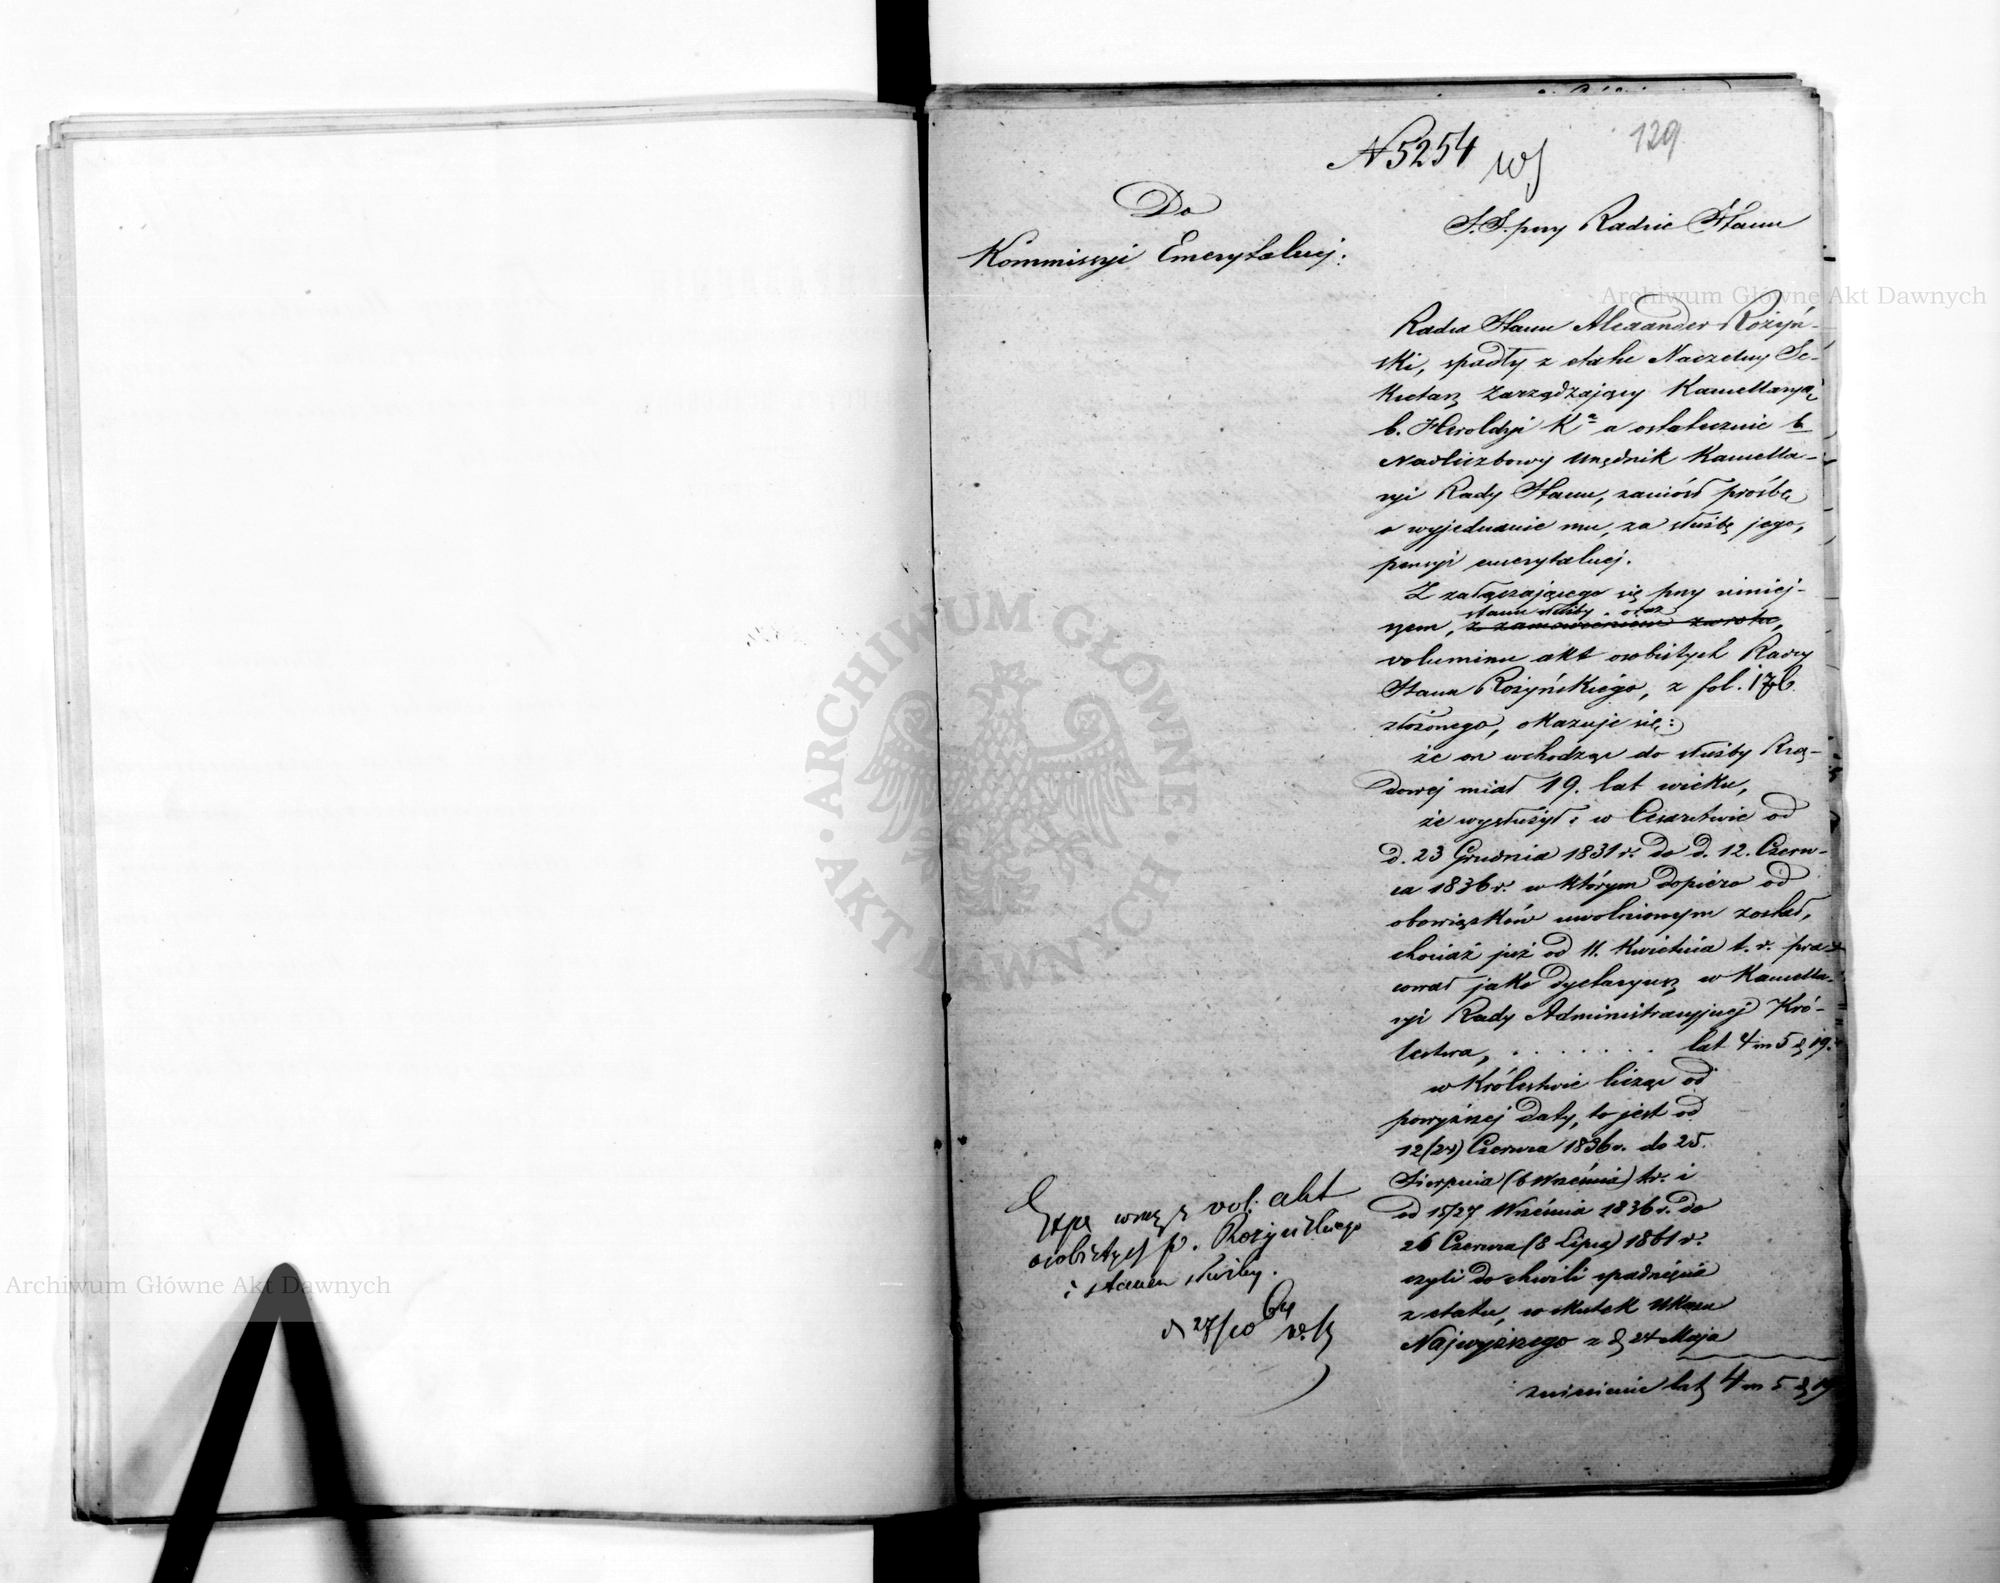 129
N 5254
Do
Kommissyi Emerytalnej.
S.S. przy Radzie Stanu
Radca Stanu Alexander Rożyń-
ski, spadły z etatu Naczelny Se-
kretarz Zarządzający Kancellaryą
b. Heroldyi Kа a ostatecznie b.
Nadliczbowy Urzędnik Kancella-
ryi Rady Stanu, zaniósł prośbę
o wyjednanie mu, za służbę jego,
pensyi emerytalnej.
Z załączającego się przy niniej-
stanu służby oraz
szem, z zamówieniem zwrotu,
voluminu akt osobistych Radcy
Stanu Rożyńskiego, z fol. 176
złożonego, okazuje się:
że on wchodząc do służby Rzą-
dowej miał 19. lat wieku,
że wysłużył: w Cesarstwie od
d. 23 Grudnia 1831 r. do d. 12. Czerw-
ca 1836 r. w którym dopiéro od
obowiązków uwolnionym został,
chociaż już od 11. Kwietnia t. r. pra-
cował jako dyetaryusz w Kancella-
ryi Rady Administracyjnej Kró-
lestwa, . . . . . . . lat 4 m 5 d 19.
w Królestwie licząc od
powyższej daty, to jest od
12/24 Czerwca 1836 r. do 25.
Sierpnia (6 Września) t.r. i
od 15/27 Września 1836 r. do
26 Czerwca (8 Lipca) 1861 r.
czyli do chwili spadnięcia
z etatu, w skutek Ukazu
Najwyższego z d 24 Maja
zniesienie lat 4 m 5 d 19
Exp. wraz z vol. akt
osobistych p. Rożyńskiego
i stanem służby.
d 27/10 64
Archiwum Główne Akt Dawnych
Archiwum Główne Akt Dawnych
ARCHIWUM GŁÓWNE · AKT DAWNYCH ·